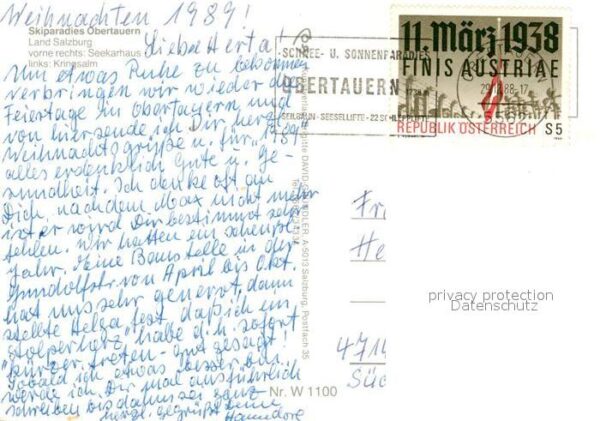 Weihnachten 1989!
Skiparadies Obertauern
Land Salzburg
vorne rechts: Seekarhaus
links: Kringsalm
Liebe Herta!
Um etwas Ruhe zu bekommen
verbringen wir wieder die
Feiertage in Obertauern und
von hier sende ich Dir herzl.
Weihnachtsgrüße u. für 1989
alles erdenklich Gute u. Ge-
sundheit. Ich denke oft an
Dich, nachdem Max nicht mehr
ist er wird Dir bestimmt sehr
fehlen. Wir hatten ein
Jahr. Eine Baustelle in der
von April bis Okt.
hat uns sehr genervt, dann
stellte Helga fest, daß ich ein
Stolperherz habe d.h. sofort
"kürzer treten" - gut gesagt!
Sobald ich etwas besser bin
werde ich Dir mal ausführlich
schreiben bis dahin sei ganz
herzl. gegrüßt Deine
Hannelore
SCHNEE- U. SONNENPARADIES
OBERTAUERN
SEILBAHN - SESSELLIFTE - 22 SCHLEPPLIFTE
11. März 1938
FINIS AUSTRIAE
29.12.88-17
REPUBLIK ÖSTERREICH S 5
A-5013 Salzburg, Postfach 36
Fr
He
privacy protection
Datenschutz
4714
Süd
Nr. W 1100